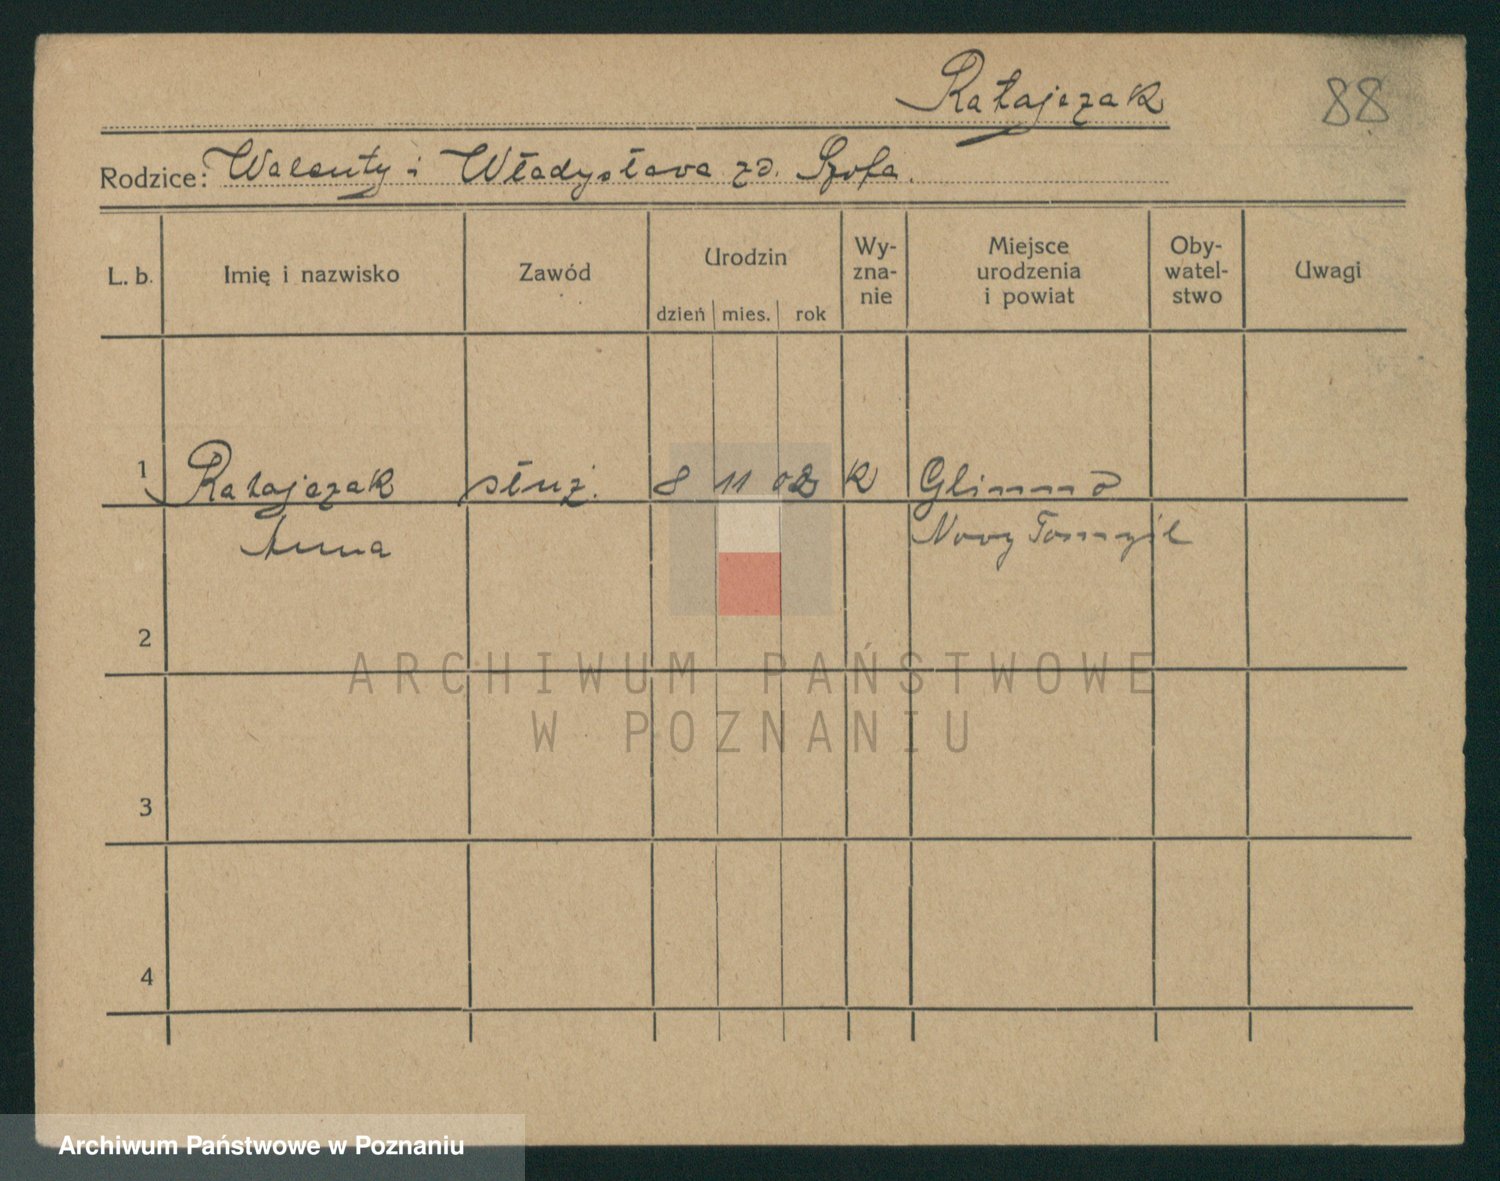 Ratajczak
88
Rodzice: Walenty i Władysława zd. Szofa.
L. b. Imię i nazwisko Zawód Urodzin dzień mies. rok Wy-zna-nie Miejsce urodzenia i powiat Oby-watel-stwo Uwagi
1 Ratajczak służ. 8 11 02 K
Anna Nowy Tomyśl
2
ARCHIWUM PAŃSTWOWE
W POZNANIU
3
4
Archiwum Państwowe w Poznaniu